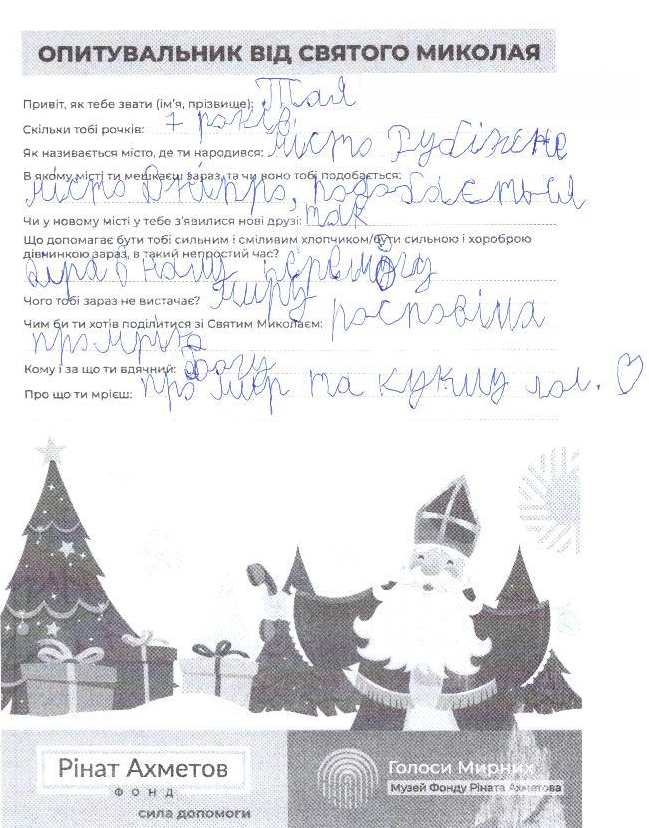 ОПИТУВАЛЬНИК ВІД СВЯТОГО МИКОЛАЯ
Привіт, як тебе звати (ім'я, прізвище): Тая
Скільки тобі рочків: 7 років
Як називається місто, де ти народився: місто Рубіжне
В якому місті ти мешкаєш зараз, та чи воно тобі подобається:
місто Дніпро, подобається
Чи у новому місті у тебе з'явилися нові друзі: так
Що допомагає бути тобі сильним і сміливим хлопчиком/бути сильною і хороброю
дівчинкою зараз, в такий непростий час?
віра в нашу перемогу
Чого тобі зараз не вистачає? миру
Чим би ти хотів поділитися зі Святим Миколаєм: росповіла
про мрію
Кому і за що ти вдячний: богу
Про що ти мрієш: про мир та куклу лол.
Рінат Ахметов
ФОНД
сила допомоги
Голоси Мирних
Музей Фонду Ріната Ахметова